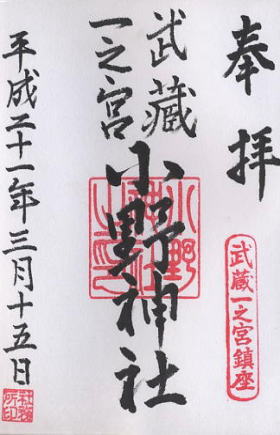 奉拝
武蔵一之宮鎮座
武藏
一之宮
小野神社
平成二十一年三月十五日